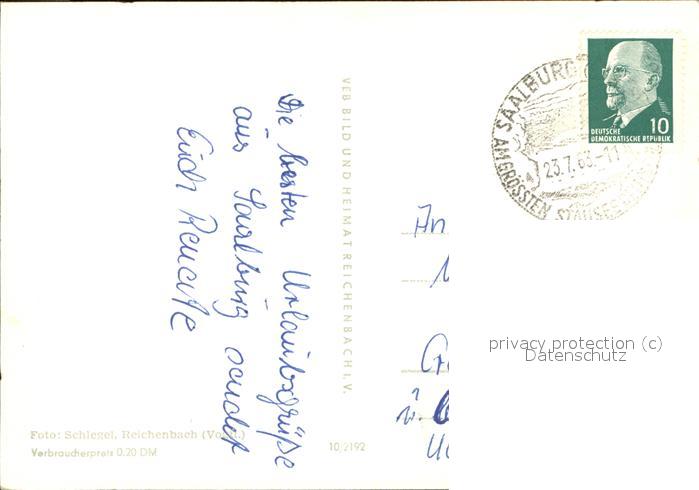 Die besten Urlaubsgrüße
aus Saalburg sendet
Euch Renate
VEB BILD UND HEIMAT REICHENBACH I. V.
Foto: Schlegel, Reichenbach (Vogtl.)
Verbraucherpreis 0.20 DM
10/2192
SAALBURG
AM GRÖSSTEN STAUSEE
23.7.63-11
10
DEUTSCHE
DEMOKRATISCHE REPUBLIK
An
privacy protection (c)
Datenschutz